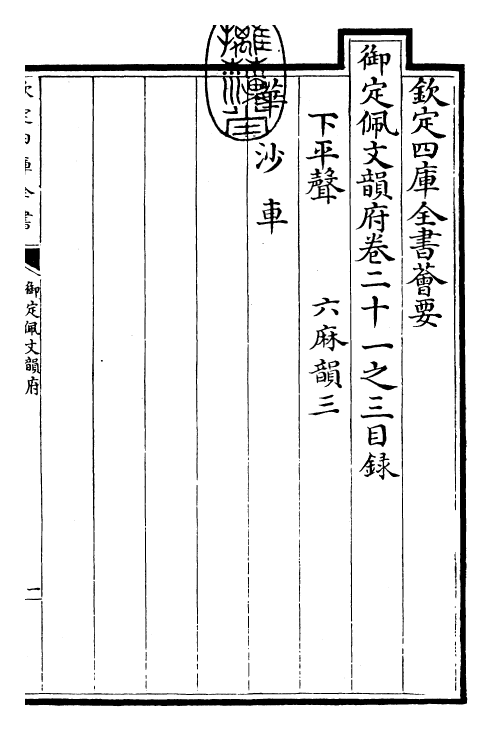 欽定四庫全書薈要
御定佩文韻府卷二十一之三目録
下平聲　六麻韻三
華沙車
欽定四庫全書
御定佩文韻府
一